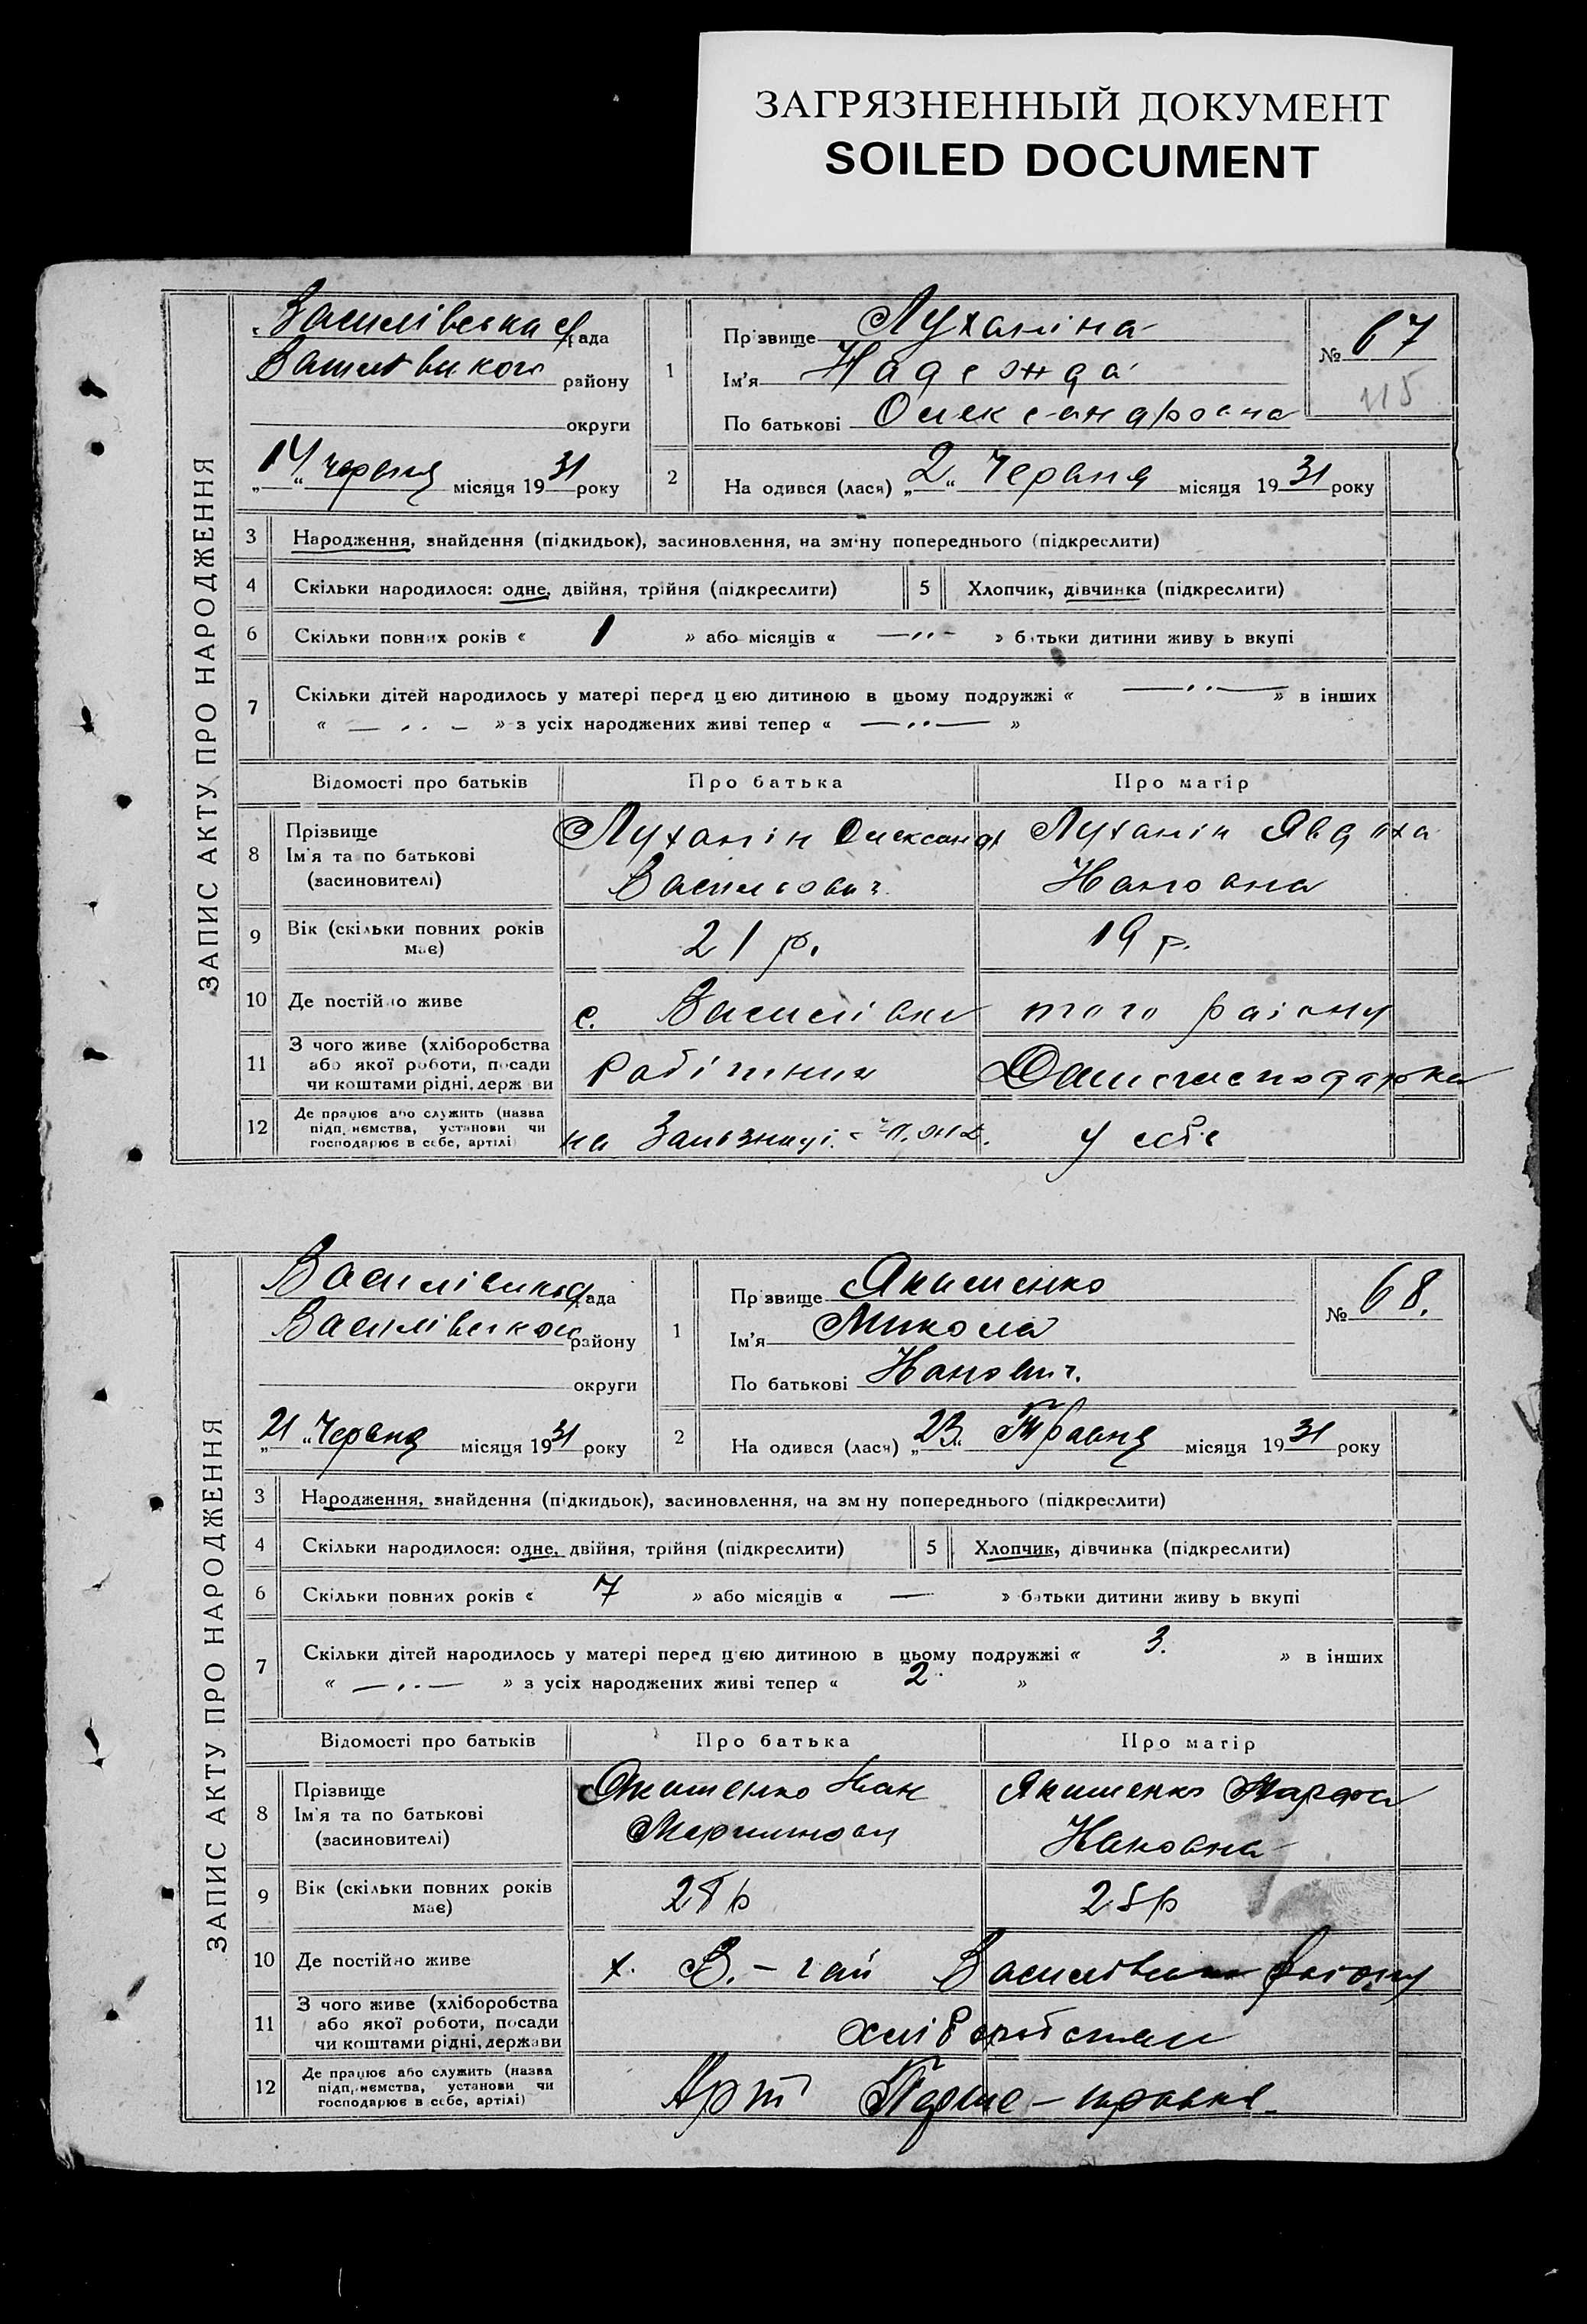 ЗАГРЯЗНЕННЫЙ ДОКУМЕНТ
SOILED DOCUMENT
ЗАПИС АКТУ ПРО НАРОДЖЕННЯ
Василівська с/рада
Василівського району
округи
„14“ червня місяця 1931 року
1
Прізвище Луханіна
Ім'я Надежда
По батькові Олександровна
№ 67
115
2
На одився (лася) „2“ Червня місяця 1931 року
3 Народження, знайдення (підкидьок), засиновлення, на зміну попереднього (підкреслити)
4 Скільки народилося: одне, двійня, трійня (підкреслити) 5 Хлопчик, дівчинка (підкреслити)
6 Скільки повних років « 1 » або місяців « —··— » батьки дитини живу ь вкупі
7 Скільки дітей народилось у матері перед цією дитиною в цьому подружжі « —··— » в інших
« —··— » з усіх народжених живі тепер « —··— »
Відомості про батьків Про батька Про матір
8 Прізвище
Ім'я та по батькові
(засиновителі)
Луханін Олександр
Васильович
Луханін Явдоха
Йановна
9 Вік (скільки повних років має)
21 р. 19 р.
10 Де постійно живе
с. Василівка того району
11 З чого живе (хліборобства
або якої роботи, посади
чи коштами рідні, держави
Робітник Домогосподарка
12 Де працює або служить (назва
підприємства, установи чи
господарює в себе, артілі)
на Залізниці у себе
ЗАПИС АКТУ ПРО НАРОДЖЕННЯ
Василівська рада
Василівського району
округи
„21“ Червня місяця 1931 року
1
Прізвище Якименко
Ім'я Микола
По батькові Йанович.
№ 68.
2
На одився (лася) „23“ Травня місяця 1931 року
3 Народження, знайдення (підкидьок), засиновлення, на зміну попереднього (підкреслити)
4 Скільки народилося: одне, двійня, трійня (підкреслити) 5 Хлопчик, дівчинка (підкреслити)
6 Скільки повних років « 7 » або місяців « — » батьки дитини живу ь вкупі
7 Скільки дітей народилось у матері перед цією дитиною в цьому подружжі « 3. » в інших
« —··— » з усіх народжених живі тепер « 2 »
Відомості про батьків Про батька Про матір
8 Прізвище
Ім'я та по батькові
(засиновителі)
Якименко Йан
Якименко Марфа
Йановна
9 Вік (скільки повних років має)
28 р 25 р
10 Де постійно живе
х. В.-гай Василівськ району
11 З чого живе (хліборобства
або якої роботи, посади
чи коштами рідні, держави
хліборобством
12 Де працює або служить (назва
підприємства, установи чи
господарює в себе, артілі)
Арт Перше-травня